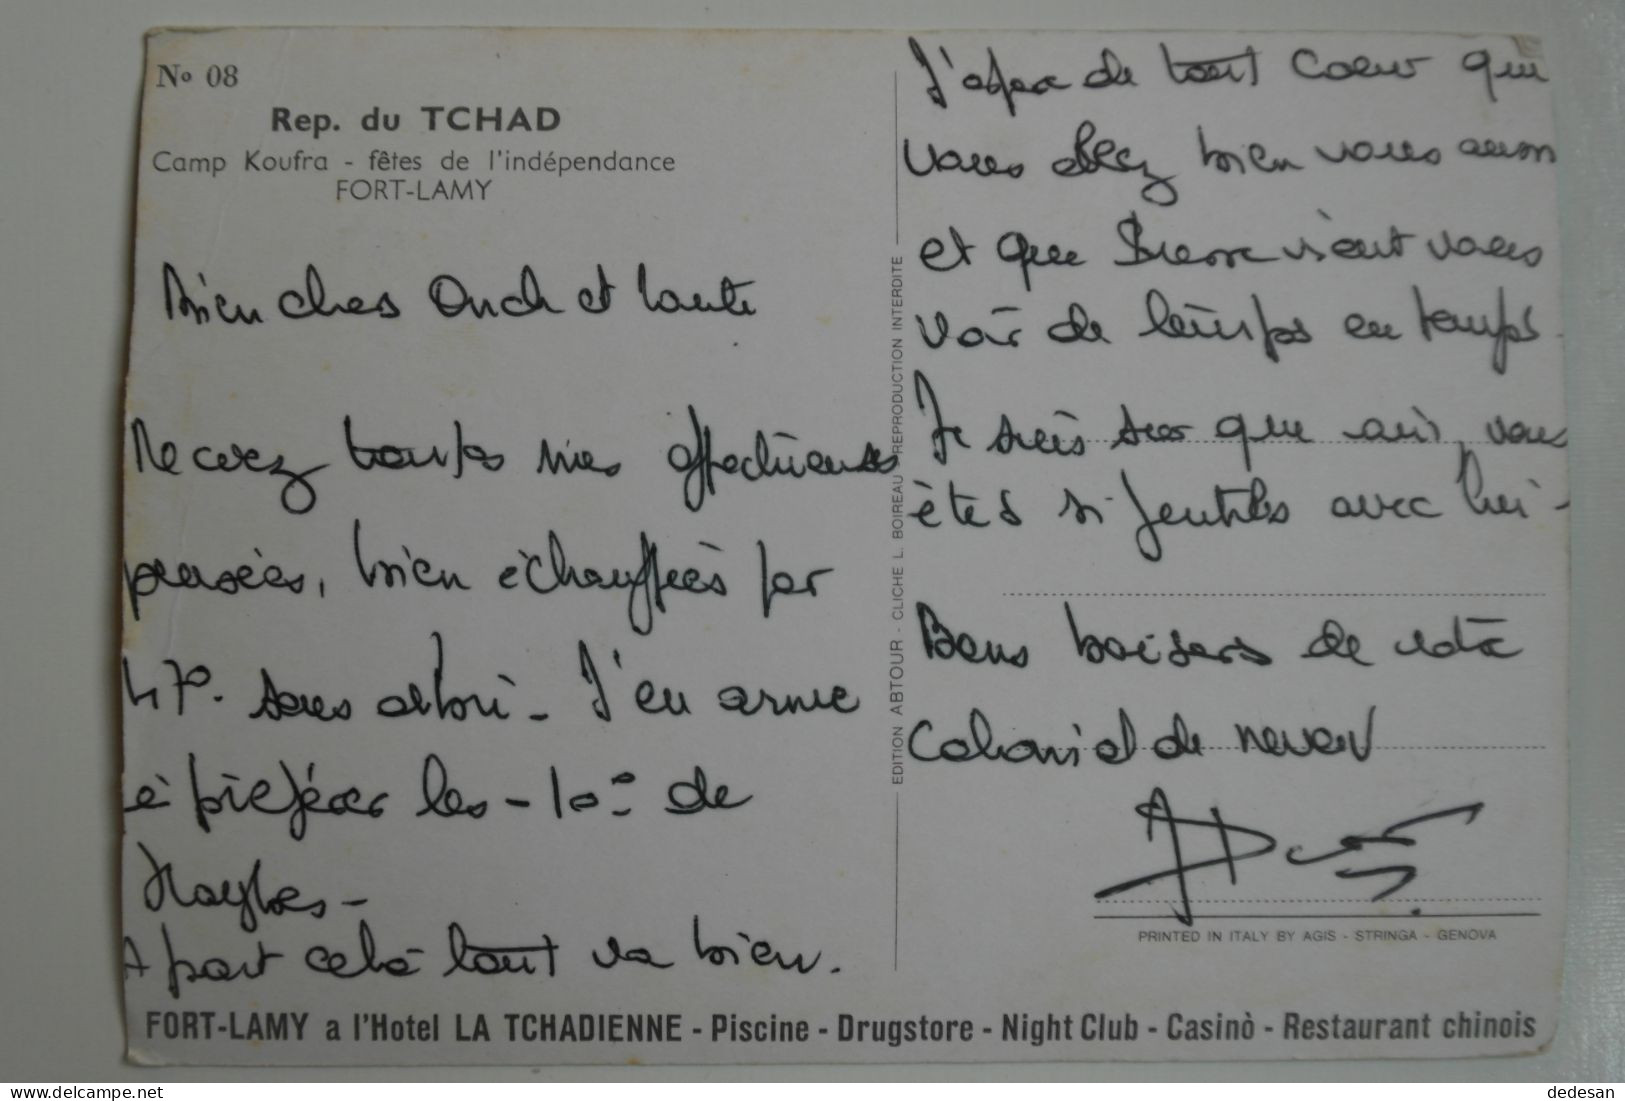 No 08
Rep. du TCHAD
Camp Koufra - fêtes de l'indépendance
FORT-LAMY
Bien chers Oncle et tante
Recevez toutes mes affectueuses
pensées, bien échauffées par
47°. sous abri - J'en arrive
à préférer les - 10° de
Noyles -
A part celà tout va bien.
J'espère de tout coeur que
vous allez bien vous aussi
et que Pierre vient vous
voir de temps en temps.
Je suis sûr que oui, vous
êtes si gentils avec lui -
Bons baisers de votre
colonial de neveu
EDITION ABTOUR - CLICHE L. BOIREAU - REPRODUCTION INTERDITE
PRINTED IN ITALY BY AGIS - STRINGA - GENOVA
FORT-LAMY a l'Hotel LA TCHADIENNE - Piscine - Drugstore - Night Club - Casinò - Restaurant chinois
www.delcampe.net
dedesan